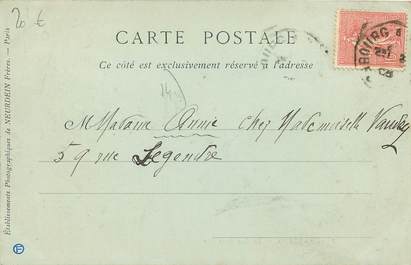 20 €
CARTE POSTALE
Ce côté est exclusivement réservé à l'adresse
BOURG
Madame Annie chez Mademoiselle
59 rue Legendre
Etablissements Photographiques de NEURDEIN Frères. — Paris